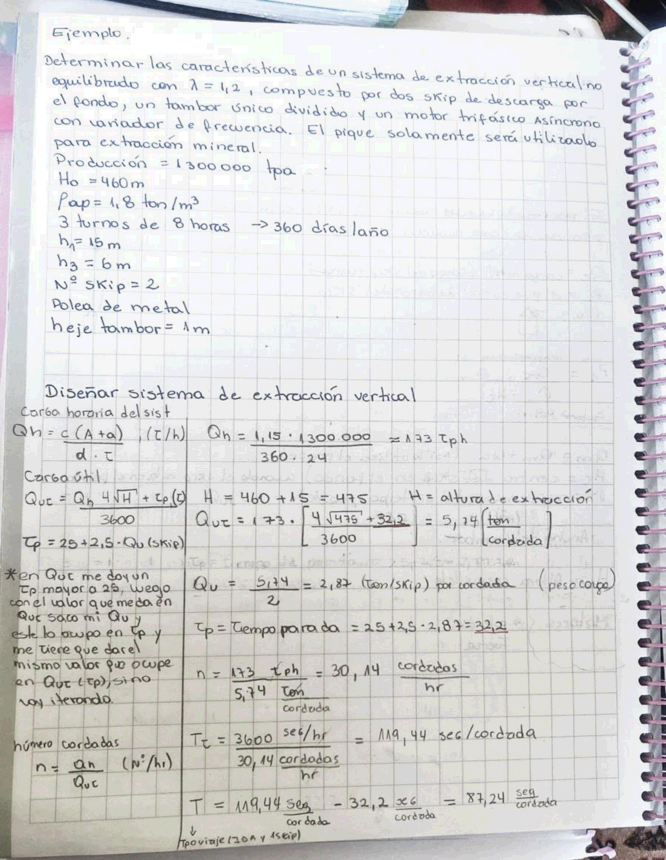 Ejemplo.
Determinar las características de un sistema de extracción vertical no
equilibrado con λ = 1,2, compuesto por dos skip de descarga por
el fondo, un tambor único dividido y un motor trifásico Asíncrono
con variador de frecuencia. El pique solamente será utilizado
para extracción mineral.
Producción = 1300000 tpa
Ho = 460m
ρap = 1,8 ton/m³
3 turnos de 8 horas → 360 días/año
h1 = 15 m
h3 = 6m
Nº skip = 2
Polea de metal
heje tambor = 1m
Diseñar sistema de extracción vertical
Carga horaria del sist
Qh = c(A+a) / d · t ; (t/h)
Qh = 1,15 · 1300.000 / 360 · 24 ≈ 173 tph
Carga útil
Qut = Qh 4√H + tp (t) / 3600
H = 460 + 15 = 475 H = altura de extracción
Qut = 173 · [ 4√475 + 32,2 / 3600 ] = 5,74 [ ton / cordada ]
tp = 25 + 2,5 · Qu (skip)
*en Qut me doy un
tp mayor a 25, luego
con el valor que me da en
Qut saco mi Qu y
este lo ocupo en tp y
me tiene que dar el
mismo valor que ocupe
en Qut (tp), si no
voy iterando.
Qu = 5,74 / 2 = 2,87 (ton/skip) por cordada (peso carga)
tp = tiempo parada = 25 + 2,5 · 2,87 = 32,2
n = 173 tph / 5,74 ton/cordada = 30,14 cordadas/hr
número cordadas
n = Qh / Qut (Nº/hr)
Tt = 3600 seg/hr / 30,14 cordadas/hr = 119,44 seg/cordada
T = 119,44 seg/cordada - 32,2 seg/cordada = 87,24 seg/cordada
↓